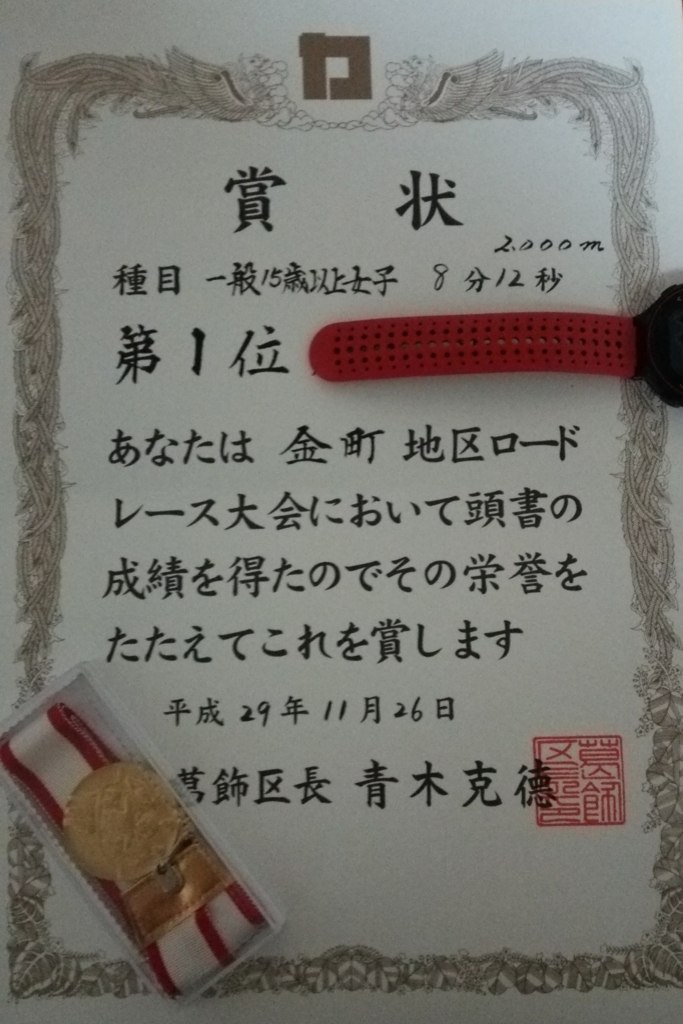 賞 状
2.000m
種目 一般15歳以上女子 8分12秒
第1位
あなたは 金町 地区ロード
レース大会において頭書の
成績を得たのでその栄誉を
たたえてこれを賞します
平成29年11月26日
葛飾区長 青木克德